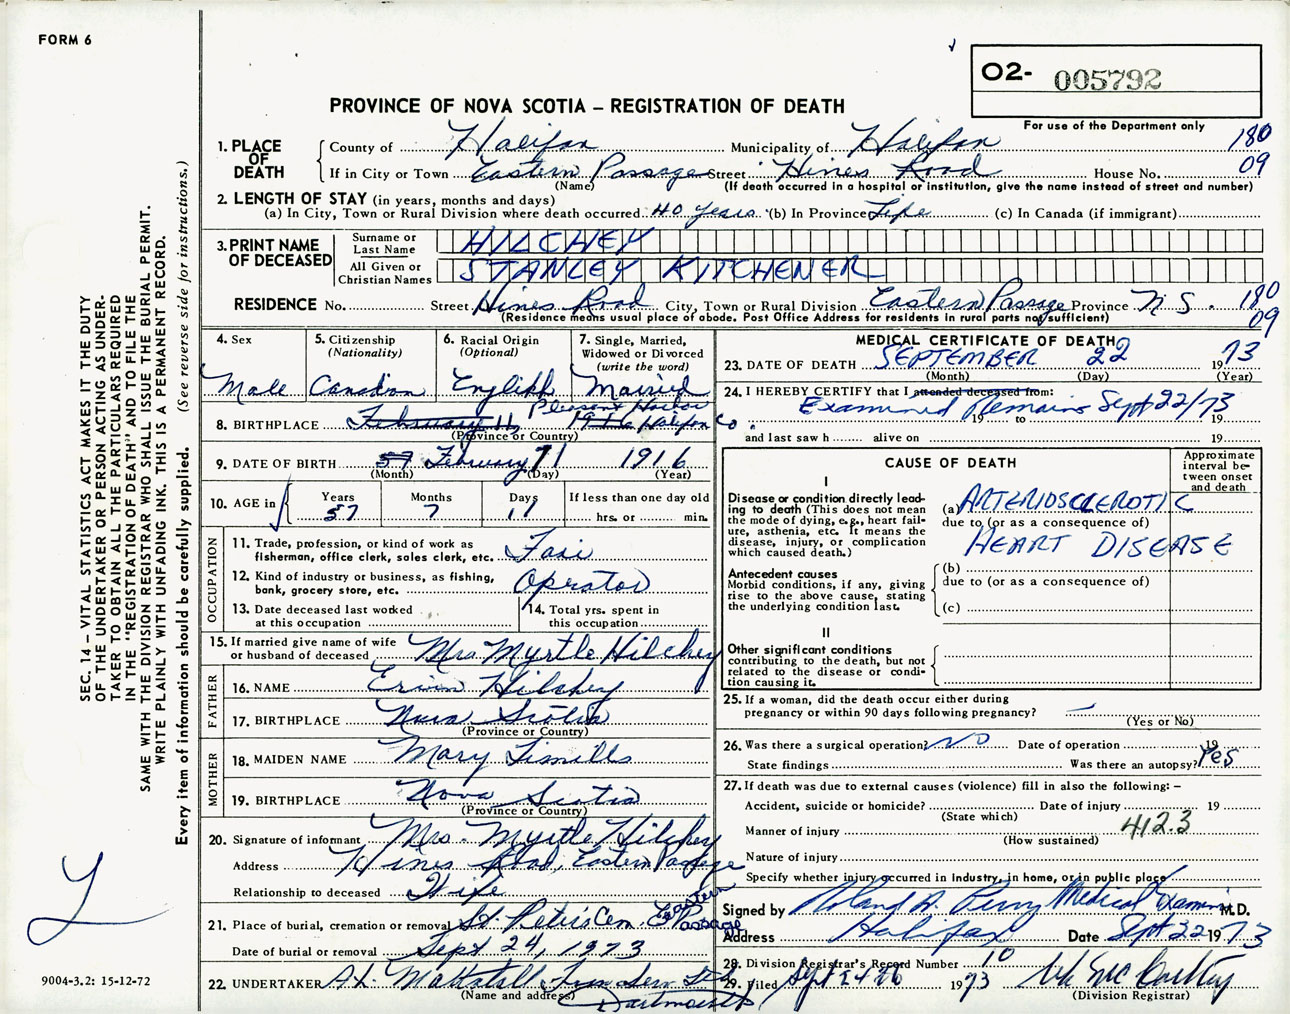 FORM 6
O2- 005792
For use of the Department only
PROVINCE OF NOVA SCOTIA – REGISTRATION OF DEATH
1. PLACE OF DEATH
County of Halifax Municipality of Halifax 180
If in City or Town Eastern Passage Street Hines Road House No. 09
(Name) (If death occurred in a hospital or institution, give the name instead of street and number)
2. LENGTH OF STAY (in years, months and days)
(a) In City, Town or Rural Division where death occurred 40 years (b) In Province Life (c) In Canada (if immigrant)
3. PRINT NAME OF DECEASED
Surname or Last Name HILCHEY
All Given or Christian Names STANLEY KITCHENER
RESIDENCE No. Street Hines Road City, Town or Rural Division Eastern Passage Province N S. 180
(Residence means usual place of abode. Post Office Address for residents in rural parts not sufficient) 09
4. Sex Male
5. Citizenship (Nationality) Canadian
6. Racial Origin (Optional) English
7. Single, Married, Widowed or Divorced (write the word) Married
8. BIRTHPLACE February 11, 1916 Pleasant Harbor Halifax Co.
(Province or Country)
9. DATE OF BIRTH 57 February 11 1916
(Month) (Day) (Year)
10. AGE in Years 57 Months 7 Days 11 If less than one day old hrs. or min.
OCCUPATION
11. Trade, profession, or kind of work as fisherman, office clerk, sales clerk, etc. Taxi
12. Kind of industry or business, as fishing, bank, grocery store, etc. Operator
13. Date deceased last worked at this occupation
14. Total yrs. spent in this occupation
15. If married give name of wife or husband of deceased Mrs Myrtle Hilchey
FATHER
16. NAME Ervin Hilshey
17. BIRTHPLACE Nova Scotia
(Province or Country)
MOTHER
18. MAIDEN NAME Mary
19. BIRTHPLACE Nova Scotia
(Province or Country)
20. Signature of informant Mrs. Myrtle Hilchey
Address Hines Road, Eastern Passage
Relationship to deceased Wife
21. Place of burial, cremation or removal St. Peter's Cem. Eastern Passage
Date of burial or removal Sept 24, 1973
22. UNDERTAKER Mattatall Dartmouth
(Name and address)
MEDICAL CERTIFICATE OF DEATH
23. DATE OF DEATH SEPTEMBER 22 1973
(Month) (Day) (Year)
24. I HEREBY CERTIFY that I attended deceased from:
Examined Remains Sept 22/73
19 to 19
and last saw h alive on 19
CAUSE OF DEATH
Approximate interval between onset and death
I
Disease or condition directly leading to death (This does not mean the mode of dying, e.g., heart failure, asthenia, etc. It means the disease, injury, or complication which caused death.)
(a) ARTERIOSCLEROTIC
due to (or as a consequence of)
HEART DISEASE
Antecedent causes
Morbid conditions, if any, giving rise to the above cause, stating the underlying condition last.
(b)
due to (or as a consequence of)
(c)
II
Other significant conditions
contributing to the death, but not related to the disease or condition causing it.
25. If a woman, did the death occur either during pregnancy or within 90 days following pregnancy? –
(Yes or No)
26. Was there a surgical operation? NO Date of operation 19
State findings Was there an autopsy? Yes
27. If death was due to external causes (violence) fill in also the following: –
Accident, suicide or homicide? Date of injury 19
(State which)
Manner of injury 412.3
(How sustained)
Nature of injury
Specify whether injury occurred in industry, in home, or in public place
Signed by Roland D. Perry Medical Examiner M.D.
Address Halifax Date Sept 22 1973
28. Division Registrar's Record Number 10
29. Filed Sept 1973
(Division Registrar)
SEC. 14 – VITAL STATISTICS ACT MAKES IT THE DUTY
OF THE UNDERTAKER OR PERSON ACTING AS UNDER-
TAKER TO OBTAIN ALL THE PARTICULARS REQUIRED
IN THE "REGISTRATION OF DEATH" AND TO FILE THE
SAME WITH THE DIVISION REGISTRAR WHO SHALL ISSUE THE BURIAL PERMIT.
WRITE PLAINLY WITH UNFADING INK. THIS IS A PERMANENT RECORD.
Every item of information should be carefully supplied. (See reverse side for instructions.)
9004-3.2: 15-12-72